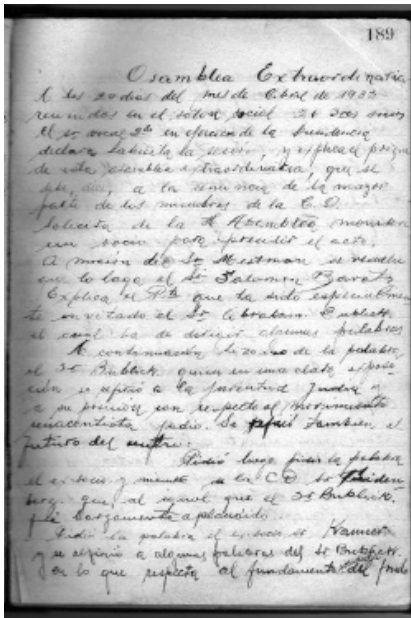 189
Asamblea Extraordinaria
A los 20 dias del mes de Abril de 1933
reunidos en el salon social 26 socios
El sr vocal 2do en ejercicio de la Presidencia
declara abierta la sesion, y explica el
de esta asamblea extraordinaria, que se
debe, dice, a la renuncia de la mayor
parte de los miembros de la C. D.
Solicita de la H Asamblea
un socio para presidir el acto.
A moción del Sr se resuelve
que lo haga el Sr Salomon
Explica el Pte que ha sido especialmen
te invitado el Sr Abraham Bublick
el cual ha de dirigir algunas palabras
A continuación hizo uso de la palabra
el Sr Bublick quien en una clara exposi
ción se refirió a la juventud Judia y
a su posición con respecto al movimiento
renacentista judio. Se refirió tambien al
futuro del
Pidió luego la palabra
el ex socio y miembro de la C D Sr
que al igual que el Sr Bublick,
fué largamente aplaudido.
Pidió la palabra el ex socio Sr Kanner
y se refirió a algunas palabras del Sr Bublick
en lo que respecta al fundamento del